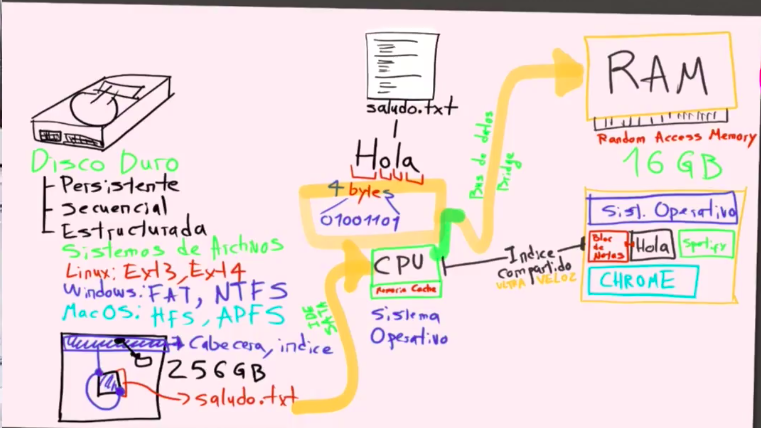 saludo.txt
Hola
4 bytes
01001101
Disco Duro
Persistente
Secuencial
Estructurada
Sistemas de Archivos
Linux: Ext3, Ext4
Windows: FAT, NTFS
MacOS: HFS, APFS
Cabecera, indice
256GB
saludo.txt
IDE
SATA
CPU
Memoria Cache
Sistema
Operativo
Bus de datos
Bridge
Indice
compartido
ULTRA VELOZ
RAM
Random Access Memory
16 GB
Sist. Operativo
Bloc
de
Notas
Hola
Spotify
CHROME